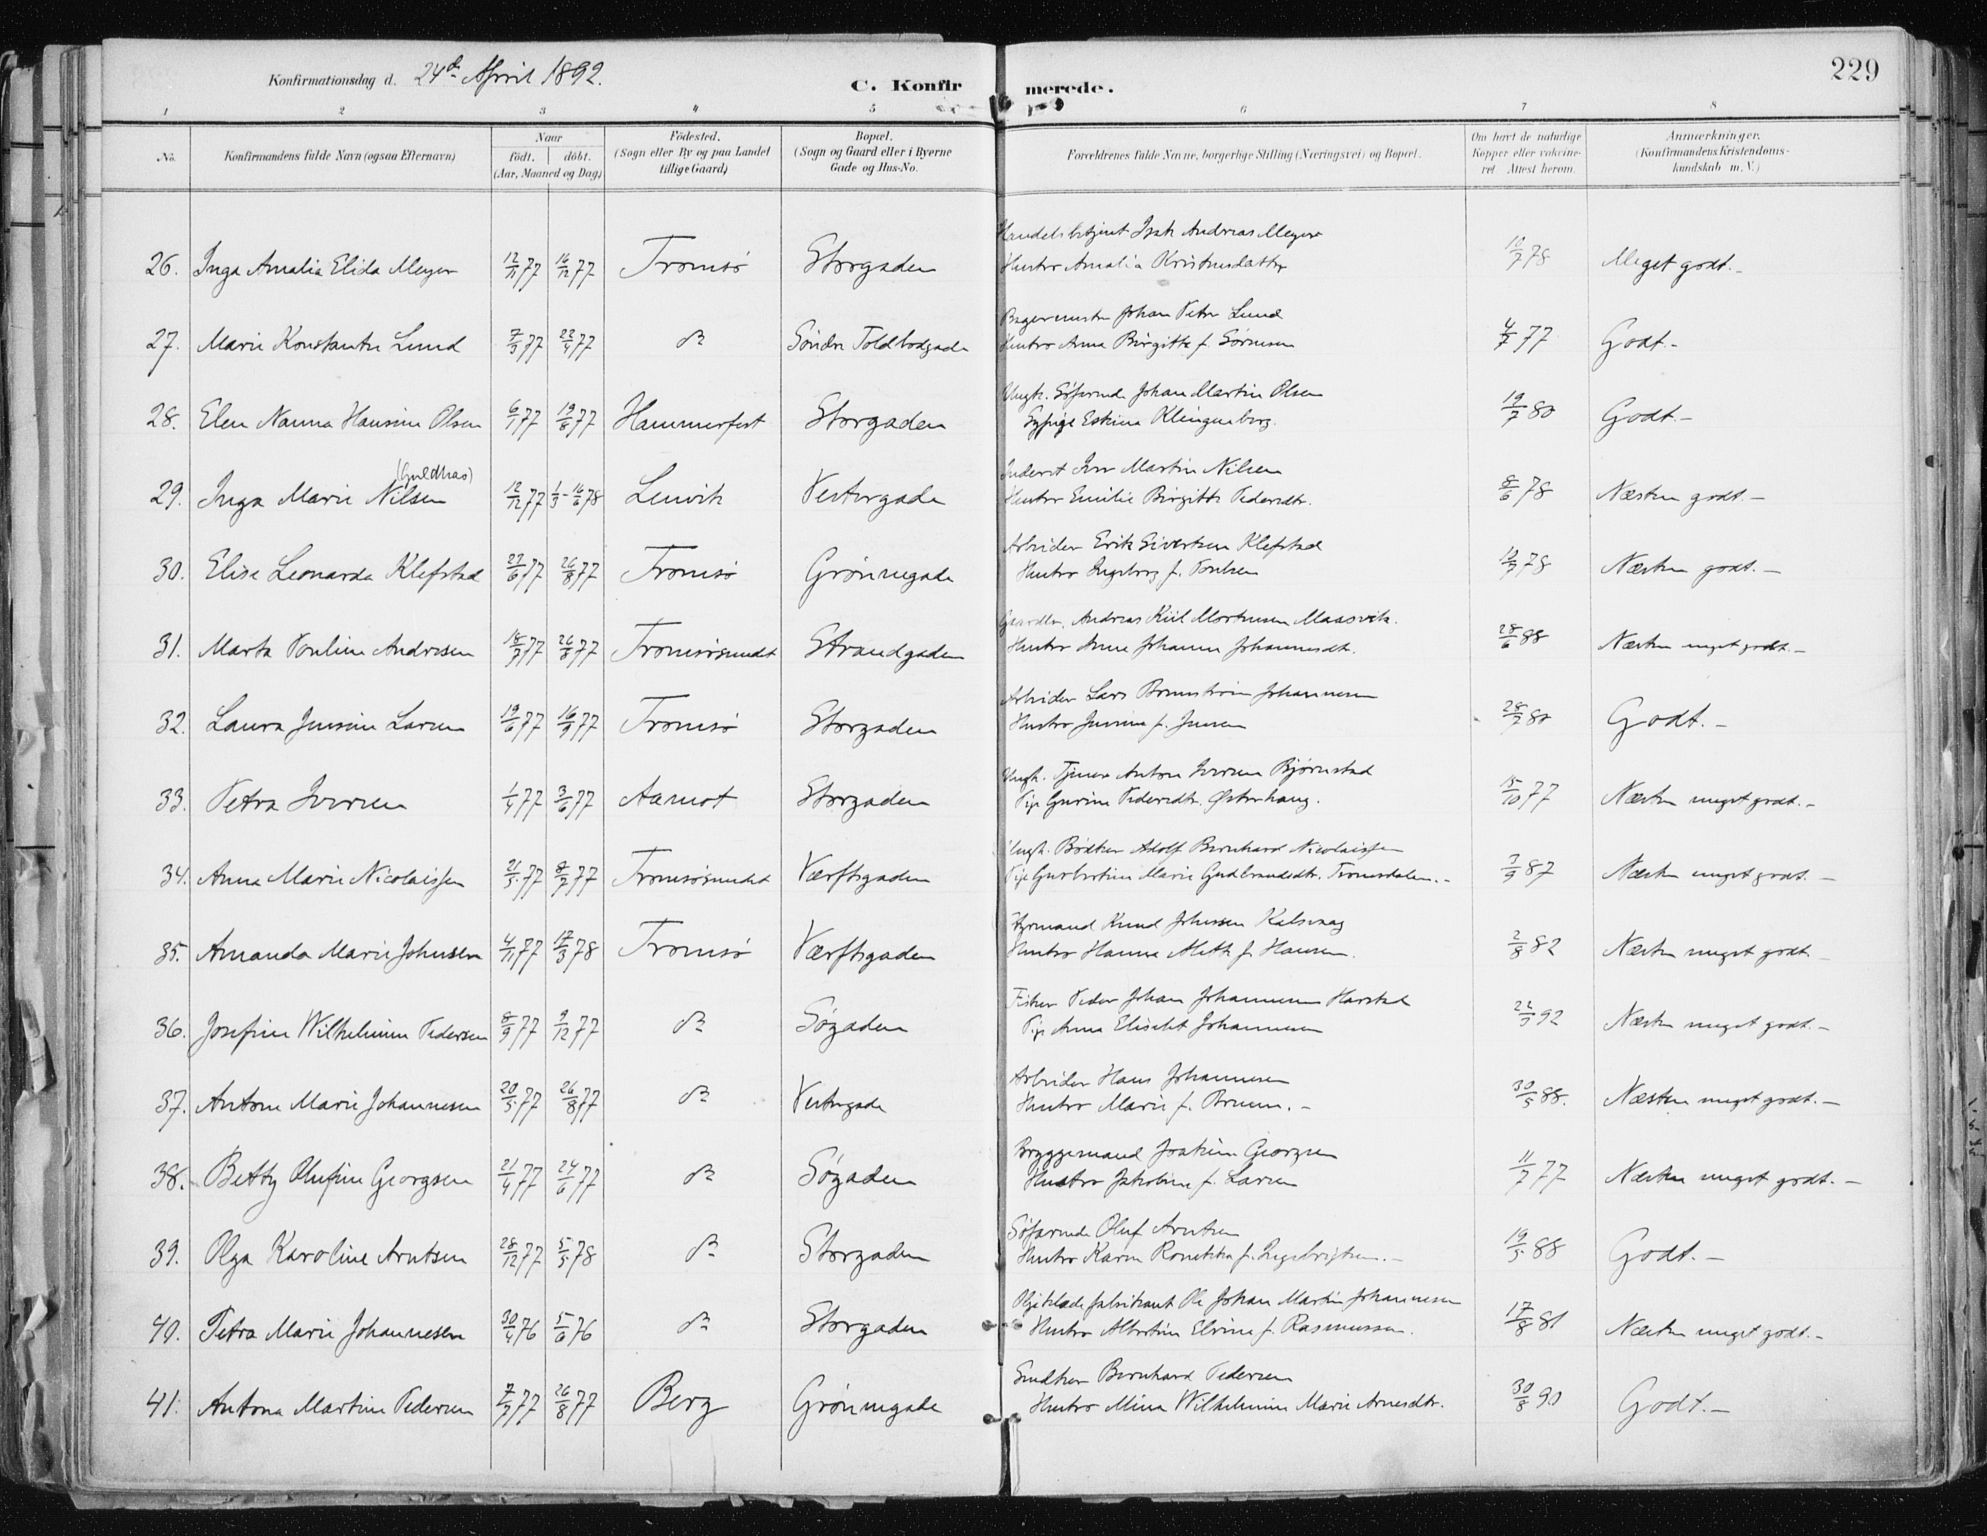 Konfirmationsdag d. 24de April 1892.
C. Konfirmerede.
229
1 2 3 4 5 6 7 8
No.
Konfirmandens fulde Navn (ogsaa Efternavn)
Naar
födt. döbt.
(Aar, Maaned og Dag)
Födested.
(Sogn eller By og paa Landet
tillige Gaard)
Bopæl.
(Sogn og Gaard eller i Byerne
Gade og Hus-No.
Forældrenes fulde Navne, borgerlige Stilling (Næringsvei) og Bopæl.
Om havt de naturlige
Kopper eller vakcine-
ret Attest herom.
Anmærkninger.
(Konfirmandens Kristendoms-
kundskab m. V.)
Handelsbetjent Isak Andreas Meyer
26. Inga Amalia Elida Meyer 12/11 77 16/12 77 Tromsø Storgaden Hustro Amalia Kristensdatter 10/7 78 Meget godt.-
Bagermester Johan Peter Lund
27. Marie Konstantse Lund 7/3 77 22/4 77 do Søndre Toldbodgade Hustro Anna Birgitte f. Sørensen 4/7 77 Godt.-
Ungk. Søfarende Johan Martin Olsen
28. Elen Nanna Hansine Olsen 6/1 77 19/6 77 Hammerfest Storgaden Sypige Eskima Klingenberg. 19/7 80 Godt.-
(Guldhav)
Inderst Iver Martin Nilsen
29. Inga Marie Nilsen 12/12 77 1/3-16/6 78 Lenvik Vestergade Hustro Emilie Birgitte Pedersdtr. 8/6 78 Næsten godt.-
Arbeider Erik Sivertsen Klefstad
30. Elise Leonarda Klefstad 22/6 77 26/8 77 Tromsø Grønnegade Hustro Ingeborg f. Paulsen 10/7 78 Næsten godt.-
Gaardbr. Andreas Kiil Mortensen Maasvik.
31. Marta Pauline Andresen 18/7 77 26/8 77 Tromsøsundet Strandgaden Hustro Anne Johanna Johannesdtr. 28/6 88 Næsten meget godt.-
Arbeider Lars Brunstrøm Johannesen
32. Laura Jensine Larsen 19/6 77 16/9 77 Tromsø Storgaden Hustro Jensine f. Jensen 28/7 80 Godt.-
Ungk. Tjener Anton Iversen Bjørnstad
33. Petra Iversen 1/4 77 3/6 77 Aamot Storgaden Pige Gurine Pedersdtr. Østerhaug. 15/10 77 Næsten meget godt.-
Ungk. Bødker Adolf Bernhard Nicolaissen
34. Anna Marie Nicolaissen 21/5 77 8/7 77 Tromsøsundet Værftsgaden Pige Marie Gudbrandsdtr. Tromsdalen.- 3/9 87 Næsten meget godt.-
Styrmand Knud Johnsen Kalsvaag
35. Amanda Marie Johnsen 4/11 77 17/3 78 Tromsø Værftsgaden Hustro Hanna Aleth f. Hansen. 2/8 82 Næsten meget godt
Fisker Peder Johan Johannesen Harstad
36. Josefine Wilhelmine Pedersen 8/9 77 9/12 77 do Søgaden Pige Anna Elisabet Johannesen 22/3 92 Næsten meget godt.-
Arbeider Hans Johannesen
37. Antone Marie Johannesen 20/5 77 26/8 77 do Vestergade Hustro Marie f. Bruun.- 30/5 88. Næsten meget godt.-
Bryggemand Joakim Georgsen
38. Betty Olufine Georgsen 21/4 77 24/6 77 do Søgaden Hustro Jakobine f. Larsen 11/7 77 Næsten meget godt.-
Søfarende Oluf Arntsen
39. Olga Karoline Arntsen 28/12 77 5/5 78 do Storgaden Hustro Karen f. Ingebrigtsen.- 19/5 88 Godt.-
Oljeklædefabrikant Ole Johan Martin Johannesen
40. Petra Marie Johannesen 30/4 76 5/6 76 do Storgaden Hustro Albertine Elvine f. Rasmussen. 17/8 81 Næsten meget godt.-
Snedker Bernhard Pedersen
41. Antona Martine Pedersen 7/7 77 26/8 77 Berg Grønnegade Hustro Mina Wilhelmine Marie Arnesdtr. 30/8 90 Godt.-